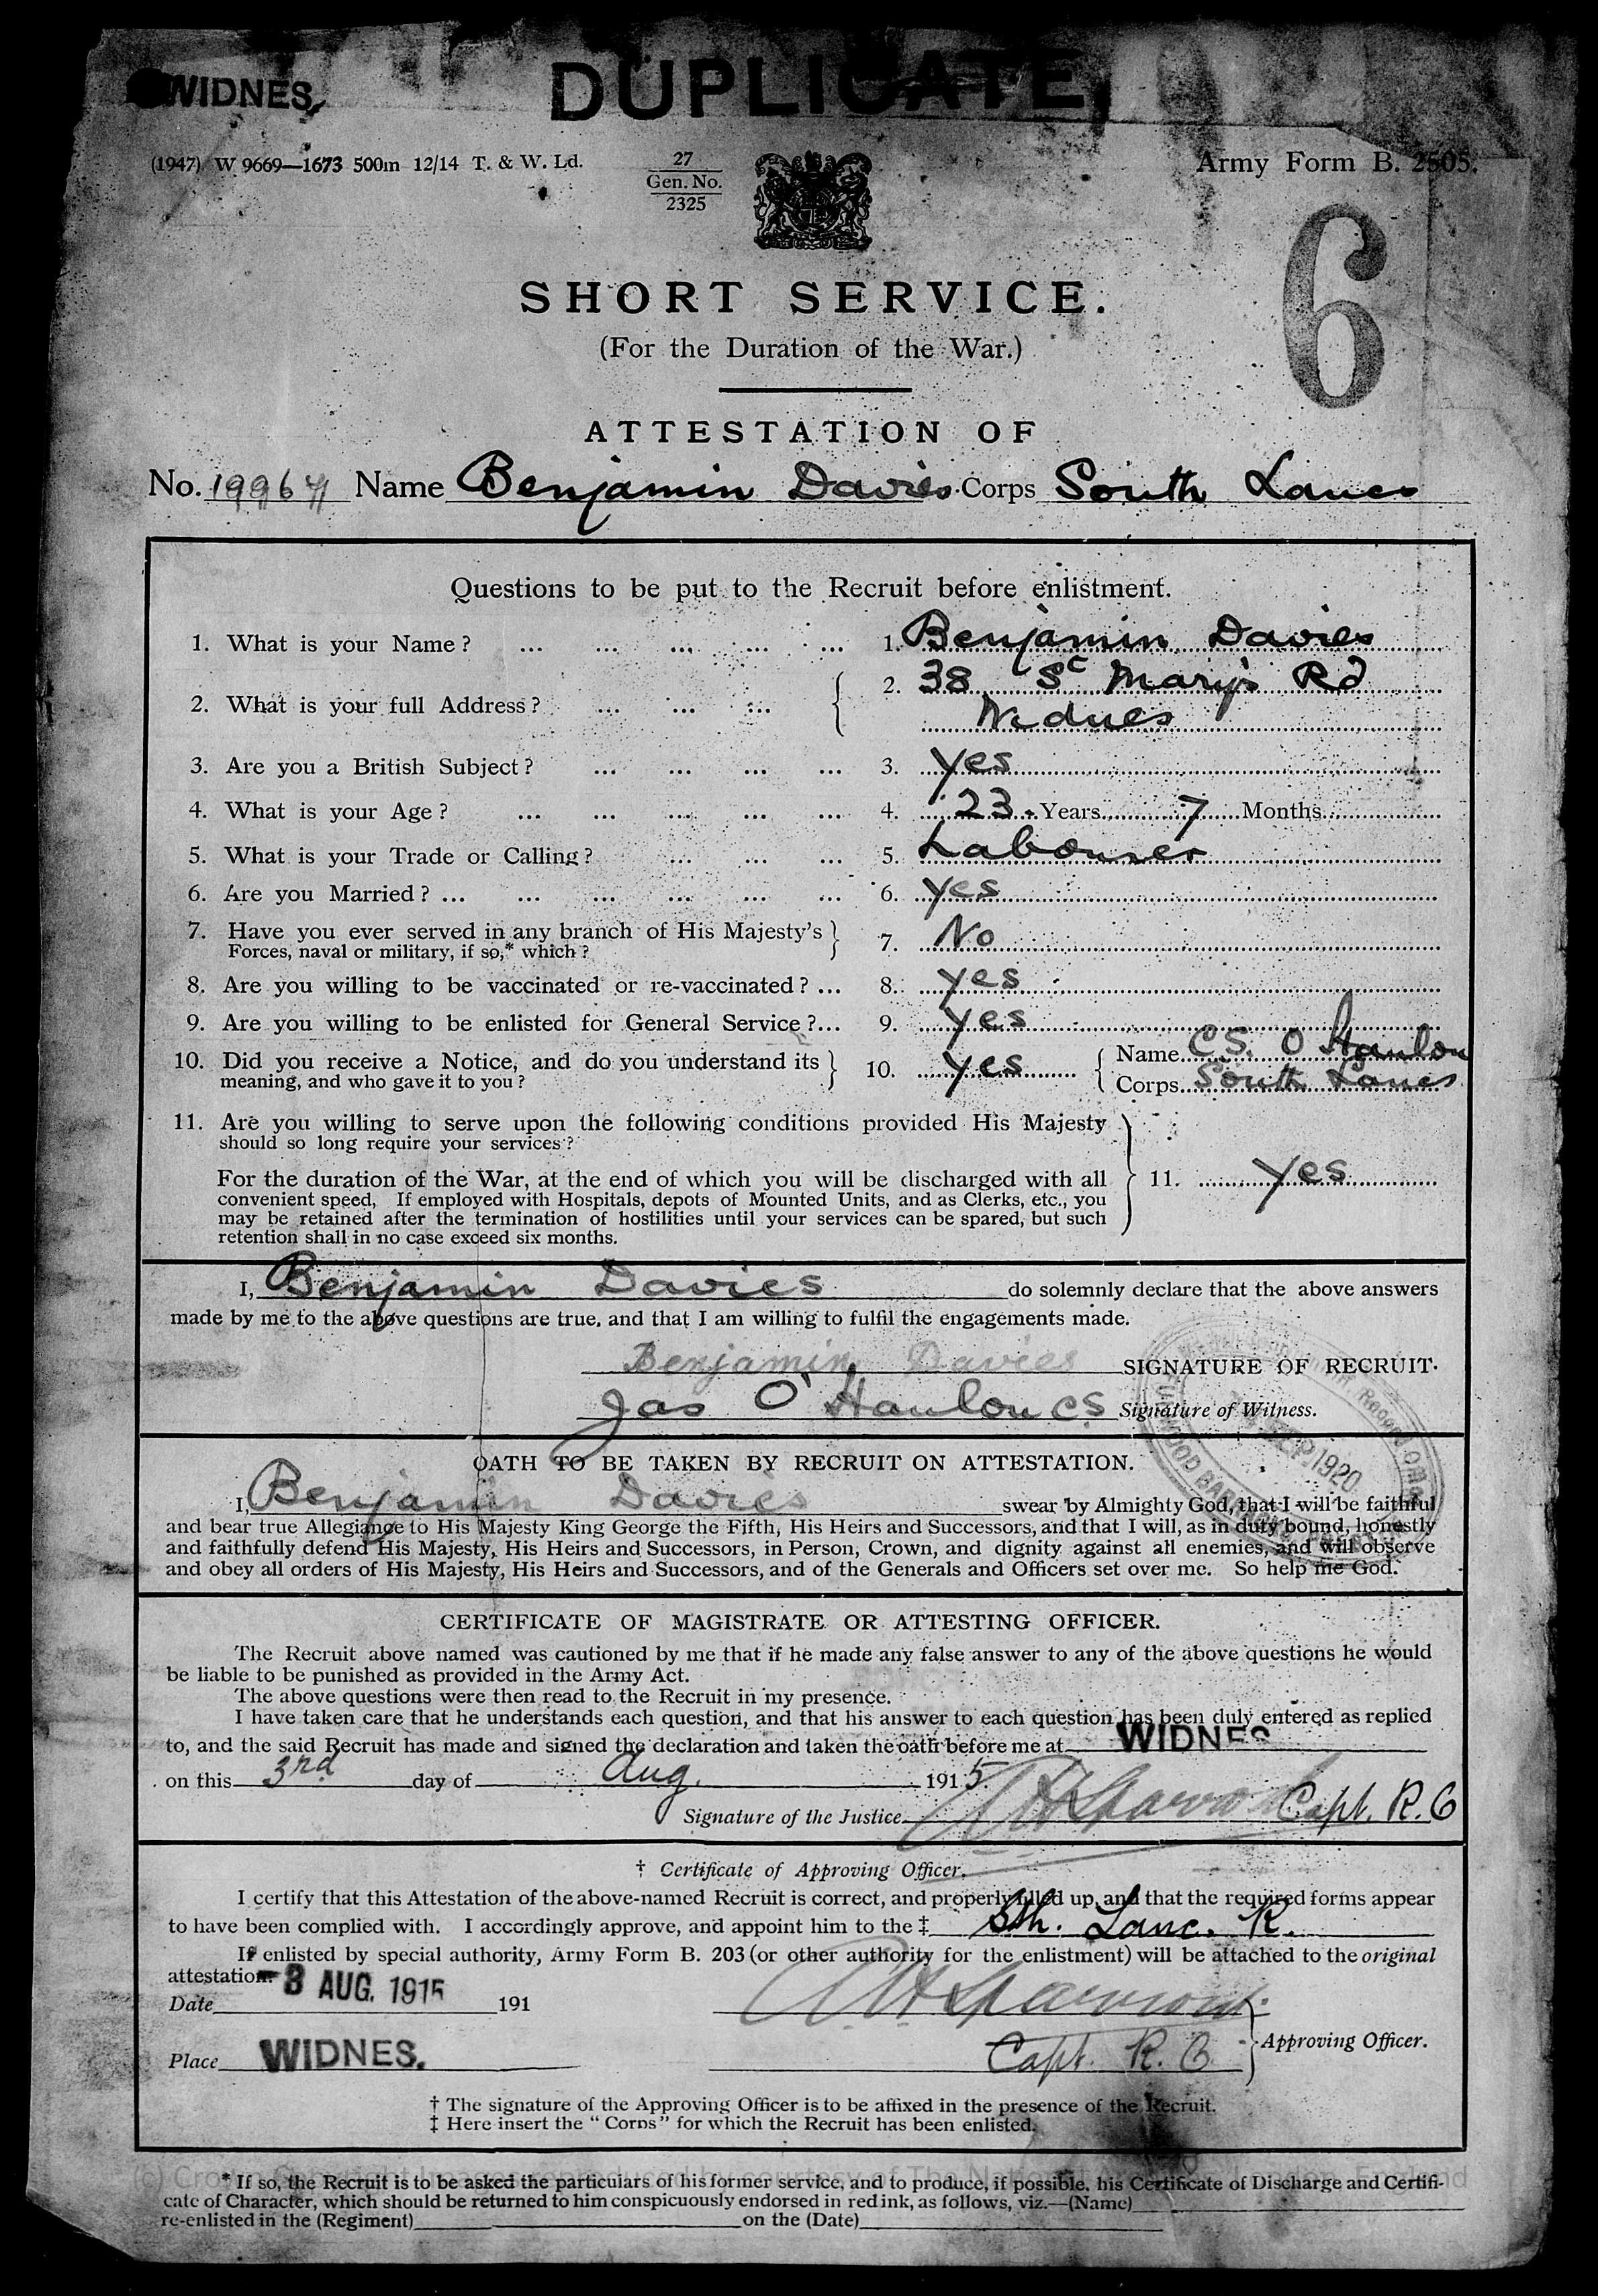 WIDNES
DUPLICATE
(1947) W 9669—1673 500m 12/14 T. & W. Ld.
27
Gen. No.
2325
Army Form B. 2505.
6
SHORT SERVICE.
(For the Duration of the War.)
ATTESTATION OF
No. 19964 Name Benjamin Davies Corps South Lancs
Questions to be put to the Recruit before enlistment.
1. What is your Name? ... ... ... ... ... 1. Benjamin Davies
2. What is your full Address? ... ... ... 2. 38 St Mary's Rd
Widnes
3. Are you a British Subject? ... ... ... ... 3. Yes
4. What is your Age? ... ... ... ... ... 4. 23 Years 7 Months
5. What is your Trade or Calling? ... ... ... 5. Labourer
6. Are you Married? ... ... ... ... ... ... 6. Yes
7. Have you ever served in any branch of His Majesty's 7. No
Forces, naval or military, if so,* which?
8. Are you willing to be vaccinated or re-vaccinated? ... 8. Yes
9. Are you willing to be enlisted for General Service? ... 9. Yes
10. Did you receive a Notice, and do you understand its 10. Yes Name C.S. O Hanlon
meaning, and who gave it to you? Corps South Lancs
11. Are you willing to serve upon the following conditions provided His Majesty
should so long require your services?
For the duration of the War, at the end of which you will be discharged with all 11. Yes
convenient speed, If employed with Hospitals, depots of Mounted Units, and as Clerks, etc., you
may be retained after the termination of hostilities until your services can be spared, but such
retention shall in no case exceed six months.
I, Benjamin Davies do solemnly declare that the above answers
made by me to the above questions are true, and that I am willing to fulfil the engagements made.
Benjamin Davies SIGNATURE OF RECRUIT.
Jas O'Hanlon CS Signature of Witness.
SEP. 1920
OATH TO BE TAKEN BY RECRUIT ON ATTESTATION.
I, Benjamin Davies swear by Almighty God, that I will be faithful
and bear true Allegiance to His Majesty King George the Fifth, His Heirs and Successors, and that I will, as in duty bound, honestly
and faithfully defend His Majesty, His Heirs and Successors, in Person, Crown, and dignity against all enemies, and will observe
and obey all orders of His Majesty, His Heirs and Successors, and of the Generals and Officers set over me. So help me God.
CERTIFICATE OF MAGISTRATE OR ATTESTING OFFICER.
The Recruit above named was cautioned by me that if he made any false answer to any of the above questions he would
be liable to be punished as provided in the Army Act.
The above questions were then read to the Recruit in my presence.
I have taken care that he understands each question, and that his answer to each question has been duly entered as replied
to, and the said Recruit has made and signed the declaration and taken the oath before me at WIDNES
on this 3rd day of Aug. 1915.
Signature of the Justice Sparrow Capt. R.O
† Certificate of Approving Officer.
I certify that this Attestation of the above-named Recruit is correct, and properly filled up, and that the required forms appear
to have been complied with. I accordingly approve, and appoint him to the ‡ Sth. Lanc. R.
If enlisted by special authority, Army Form B. 203 (or other authority for the enlistment) will be attached to the original
attestation.
Date -3 AUG. 1915 191 Sparrow
Place WIDNES. Capt. R.O Approving Officer.
† The signature of the Approving Officer is to be affixed in the presence of the Recruit.
‡ Here insert the "Corps" for which the Recruit has been enlisted.
* If so, the Recruit is to be asked the particulars of his former service, and to produce, if possible, his Certificate of Discharge and Certifi-
cate of Character, which should be returned to him conspicuously endorsed in red ink, as follows, viz.—(Name)
re-enlisted in the (Regiment) on the (Date)